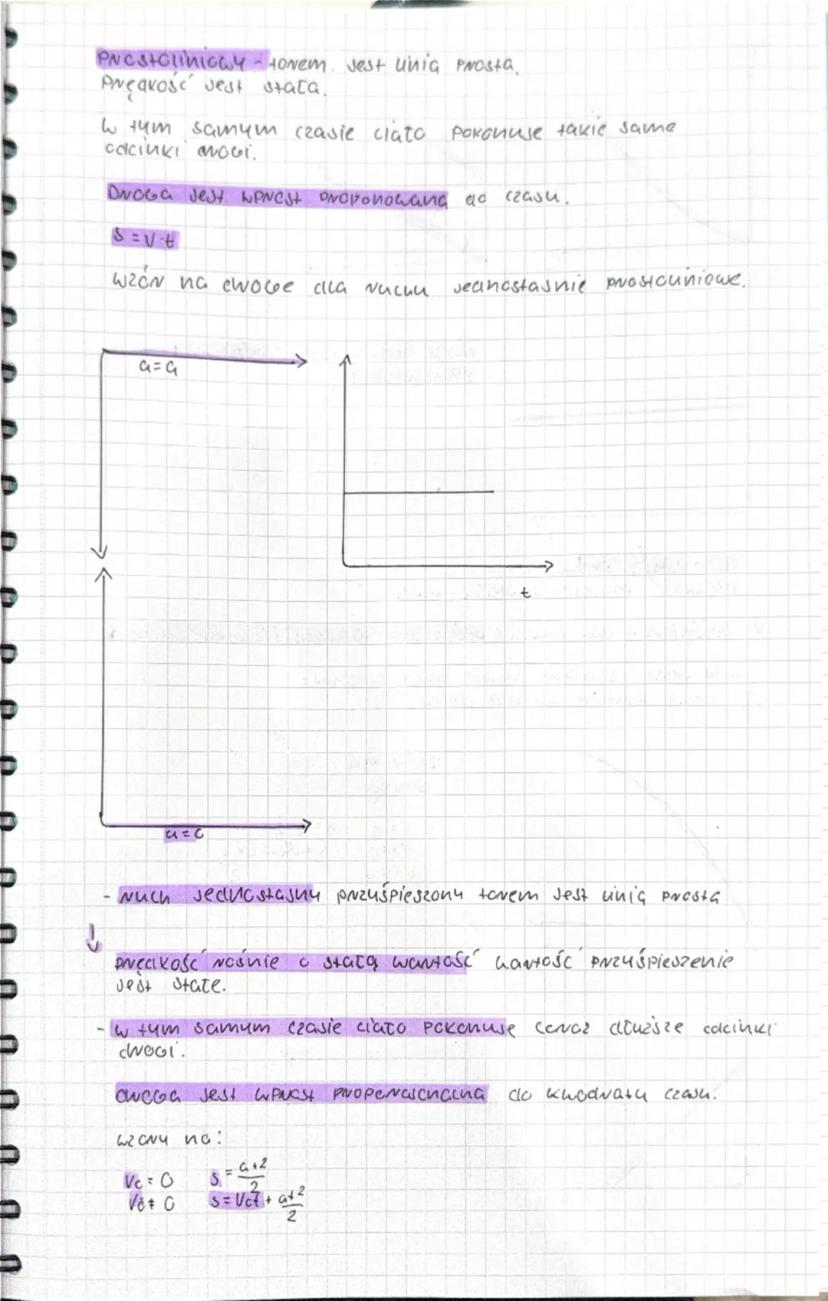 Prostoliniowy - torem jest linia prosta.
Prędkość jest stała.
W tym samym czasie ciało pokonuje takie same
odcinki drogi.
Droga jest wprost proponowana do czasu.
s = v·t
Wzór na drogę dla ruchu jednostajnie prostoliniowe.
a = a
t
a = 0
- ruch jednostajny przuśpieszony torem jest linia prosta
↓
prędkość rośnie o stałą wartość wartość przuśpieszenie
jest stałe.
- w tym samym czasie ciało pokonuje coraz dłuższe odcinki
drogi.
droga jest wprost propenasonalna do kwadratu czasu.
wzory na:
V₀ = 0 s = at²/2
V₀ ≠ 0 s = V₀t + at²/2